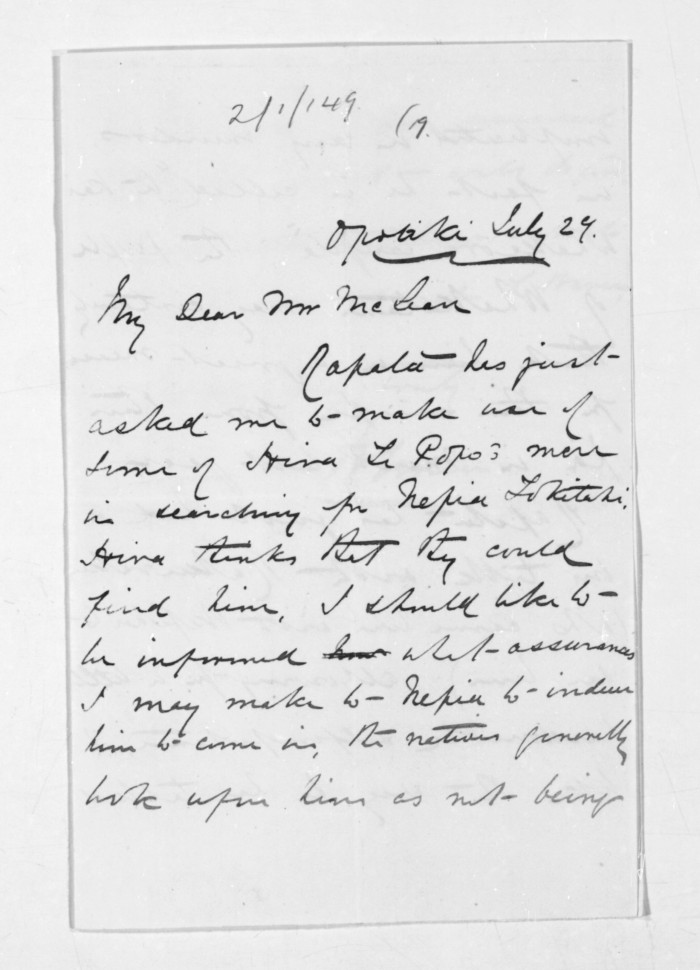 2/1/149. (9.
Opotiki July 29.
My Dear Mr McLean
Ropata has just
asked me to make use of
some of Hira Te Popo's men
in searching for Nepia Tokitahi.
Hira thinks that they could
find him. I should like to
be informed what assurances
I may make to Nepia to induce
him to come in, the natives generally
look upon him as not being